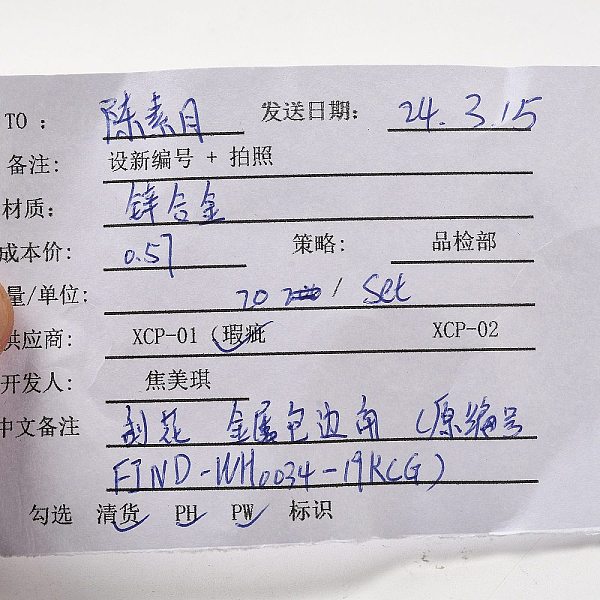 TO： 陈素月 发送日期： 24.3.15
备注： 设新编号 + 拍照
材质： 锌合金
成本价： 0.57 策略： 品检部
量/单位： 20 / Set
供应商： XCP-01（瑕疵 XCP-02
开发人： 焦美琪
中文备注 刻花 金属包边角（原编号
FIND-WH0034-19KCG）
勾选 清货 PH PW 标识